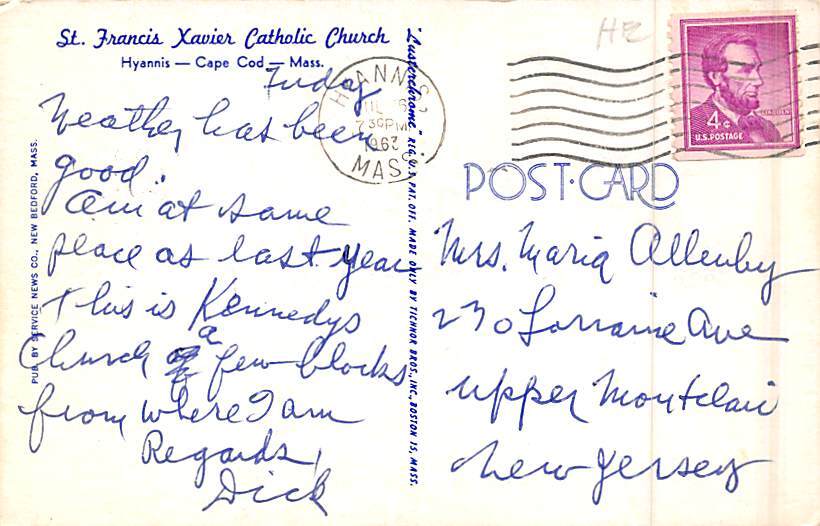 St. Francis Xavier Catholic Church
Hyannis — Cape Cod — Mass.
Friday
Weather has been
good.
Am at same
place as last year
This is Kennedys
Church a few blocks
from where I am
Regards,
Dick
PUB. BY SERVICE NEWS CO., NEW BEDFORD, MASS.
"Lusterchrome" REG. U.S. PAT. OFF. MADE ONLY BY TICHNOR BROS., INC., BOSTON 15, MASS.
HYANNIS
JUL 
7 30 PM
1963
MASS
4¢
LINCOLN
U.S. POSTAGE
POST-CARD
Mrs. Maria Allenby
230 Lorraine Ave
Upper Montclair
New Jersey